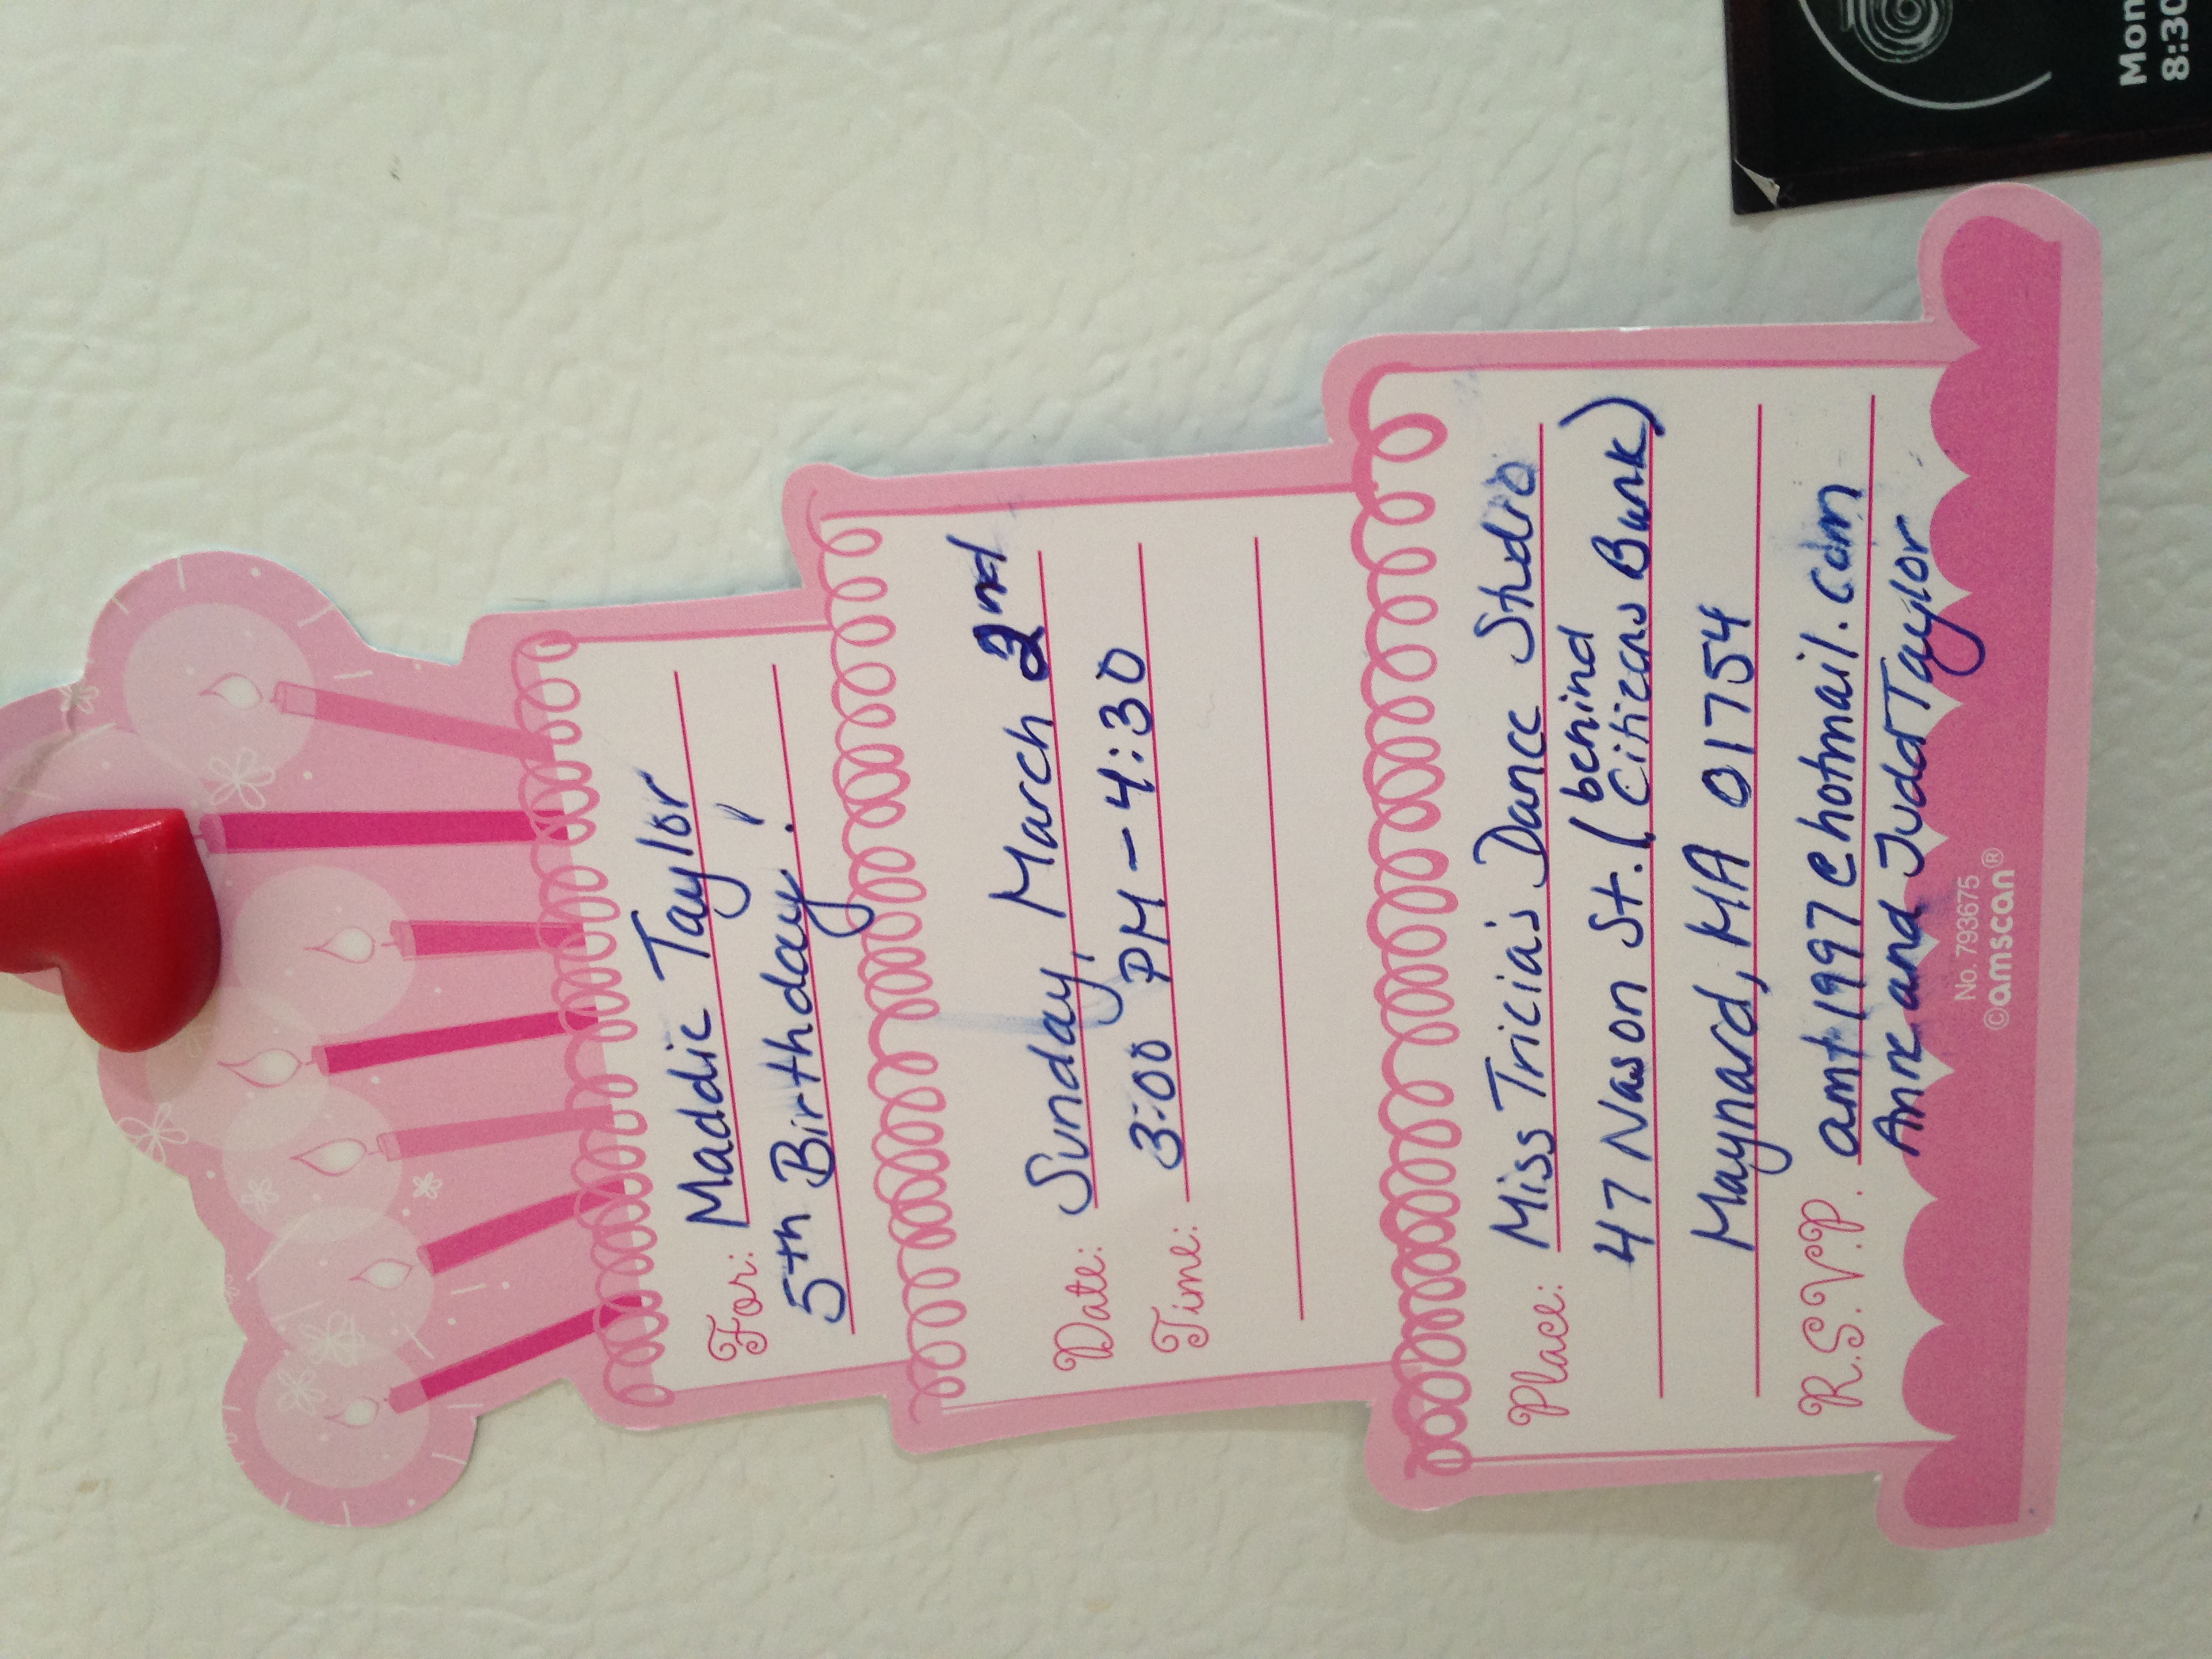 For: Maddie Taylor
5th Birthday!
Date: Sunday, March 2nd
Time: 3:00 PM - 4:30
Place: Miss Tricia's Dance Studio
47 Nason St. (behind Citizens Bank)
Maynard, MA 01754
R.S.V.P. amt1997@hotmail.com
Anne and Judd Taylor
No. 793675
©amscan®
Mon
8:30